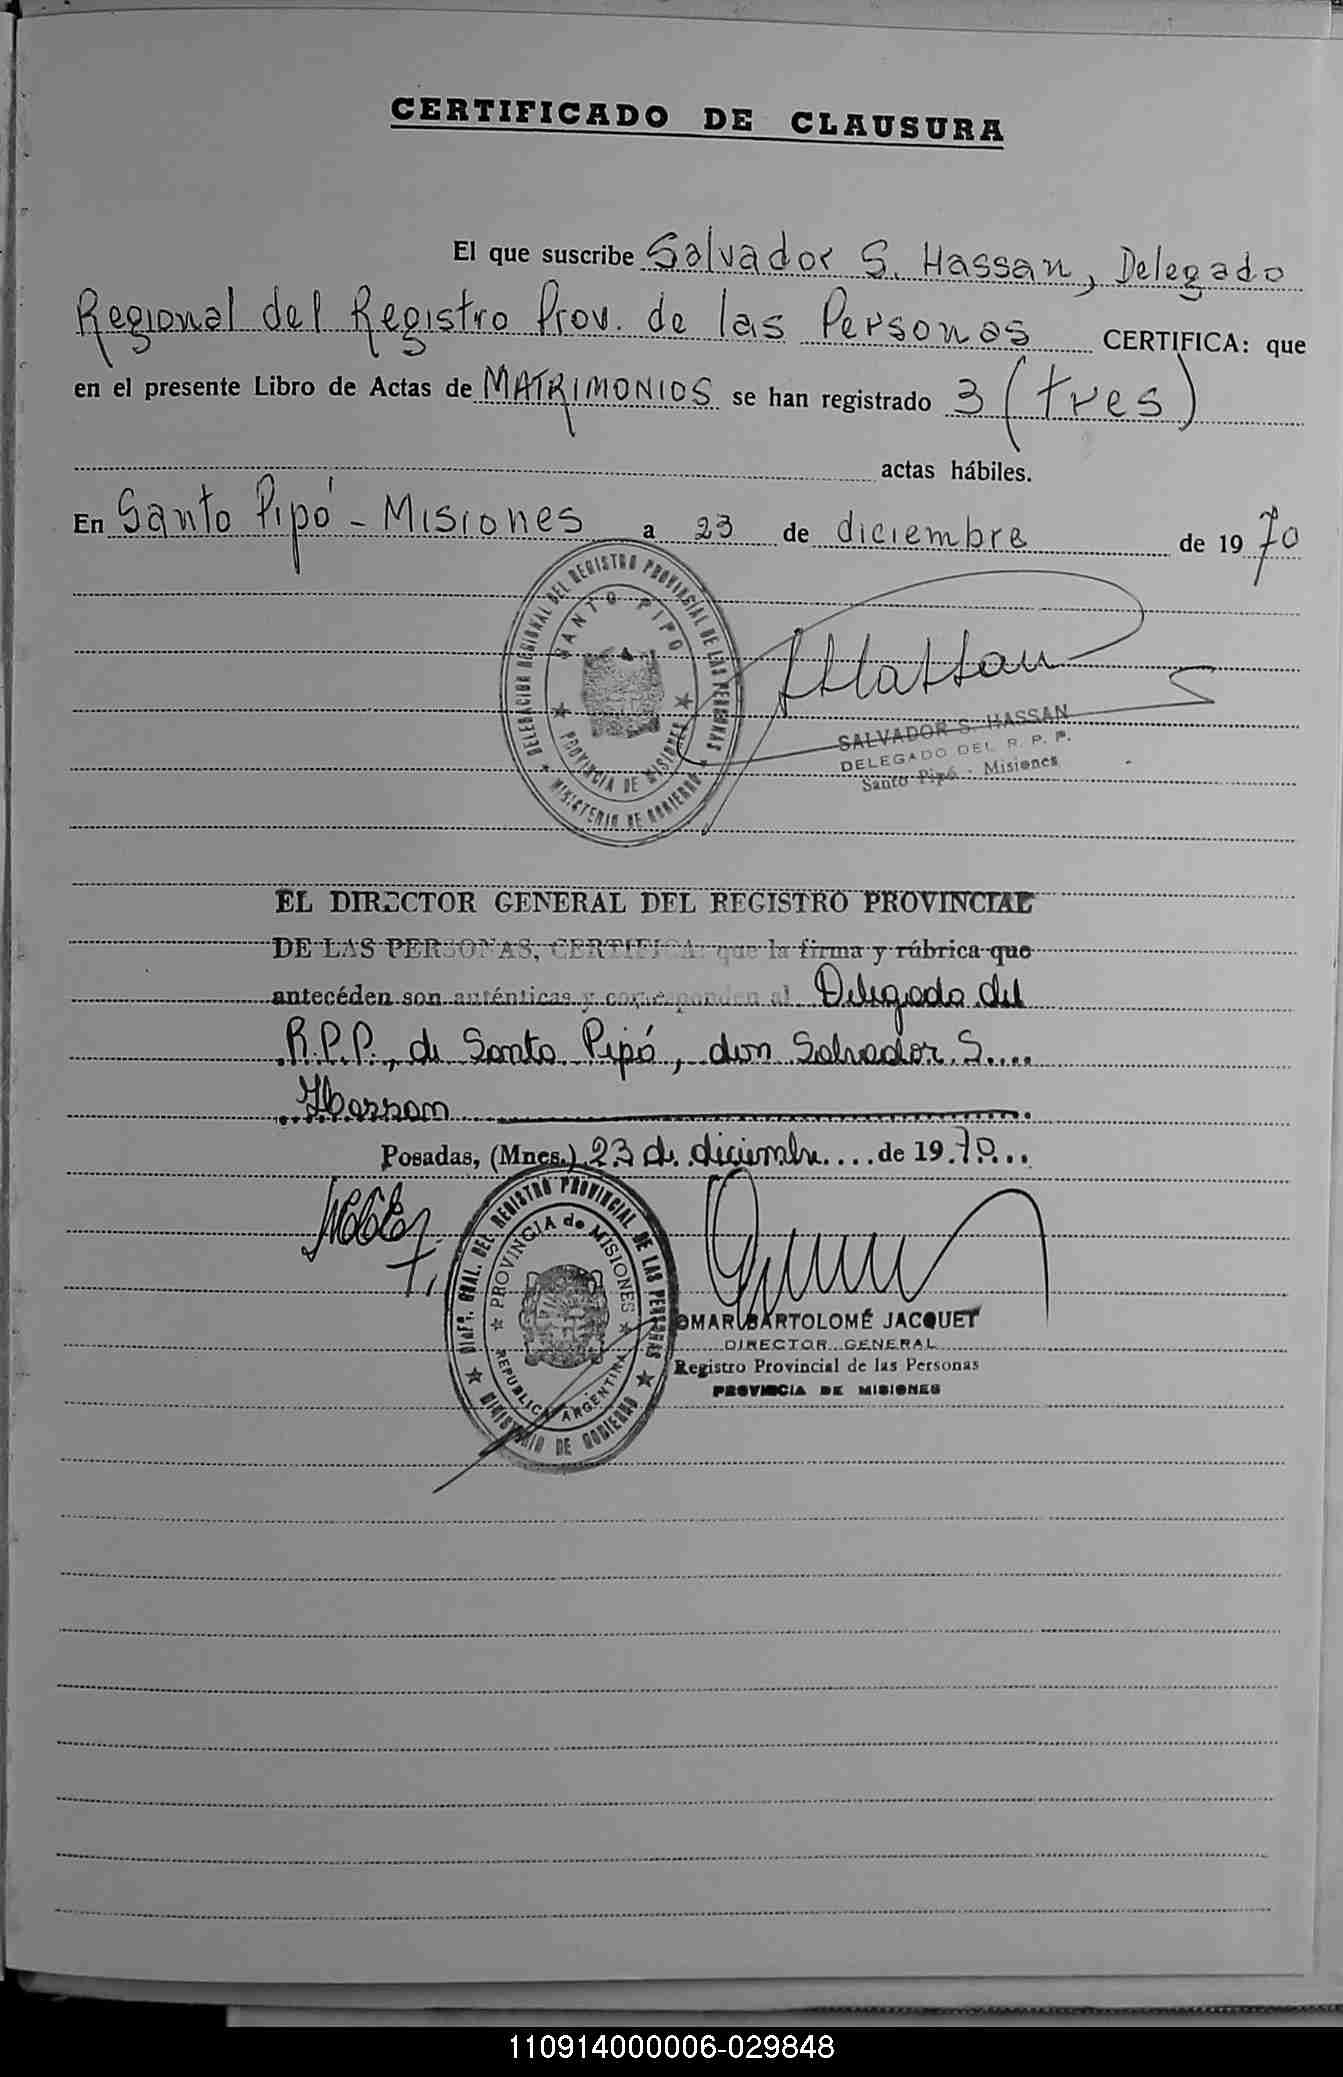 CERTIFICADO DE CLAUSURA
El que suscribe Salvador S. Hassan, Delegado
Regional del Registro Prov. de las Personas CERTIFICA: que
en el presente Libro de Actas de MATRIMONIOS se han registrado 3 (tres)
actas hábiles.
En Santo Pipó - Misiones a 23 de diciembre de 1970
DELEGACION REGIONAL DEL REGISTRO PROVINCIAL DE LAS PERSONAS
SANTO PIPO
PROVINCIA DE MISIONES
MINISTERIO DE GOBIERNO
SALVADOR S. HASSAN
DELEGADO DEL R. P. P.
Santo Pipó - Misiones
EL DIRECTOR GENERAL DEL REGISTRO PROVINCIAL
DE LAS PERSONAS, CERTIFICA: que la firma y rúbrica que
antecéden son auténticas y corresponden al Delegado del
R.P.P., de Santo Pipó, don Salvador S.
Hassan
Posadas, (Mnes.) 23 de diciembre de 1970
DIREC. GRAL. DEL REGISTRO PROVINCIAL DE LAS PERSONAS
PROVINCIA de MISIONES
REPUBLICA ARGENTINA
MINISTERIO DE GOBIERNO
OMAR BARTOLOMÉ JACQUET
DIRECTOR GENERAL
Registro Provincial de las Personas
PROVINCIA DE MISIONES
110914000006-029848